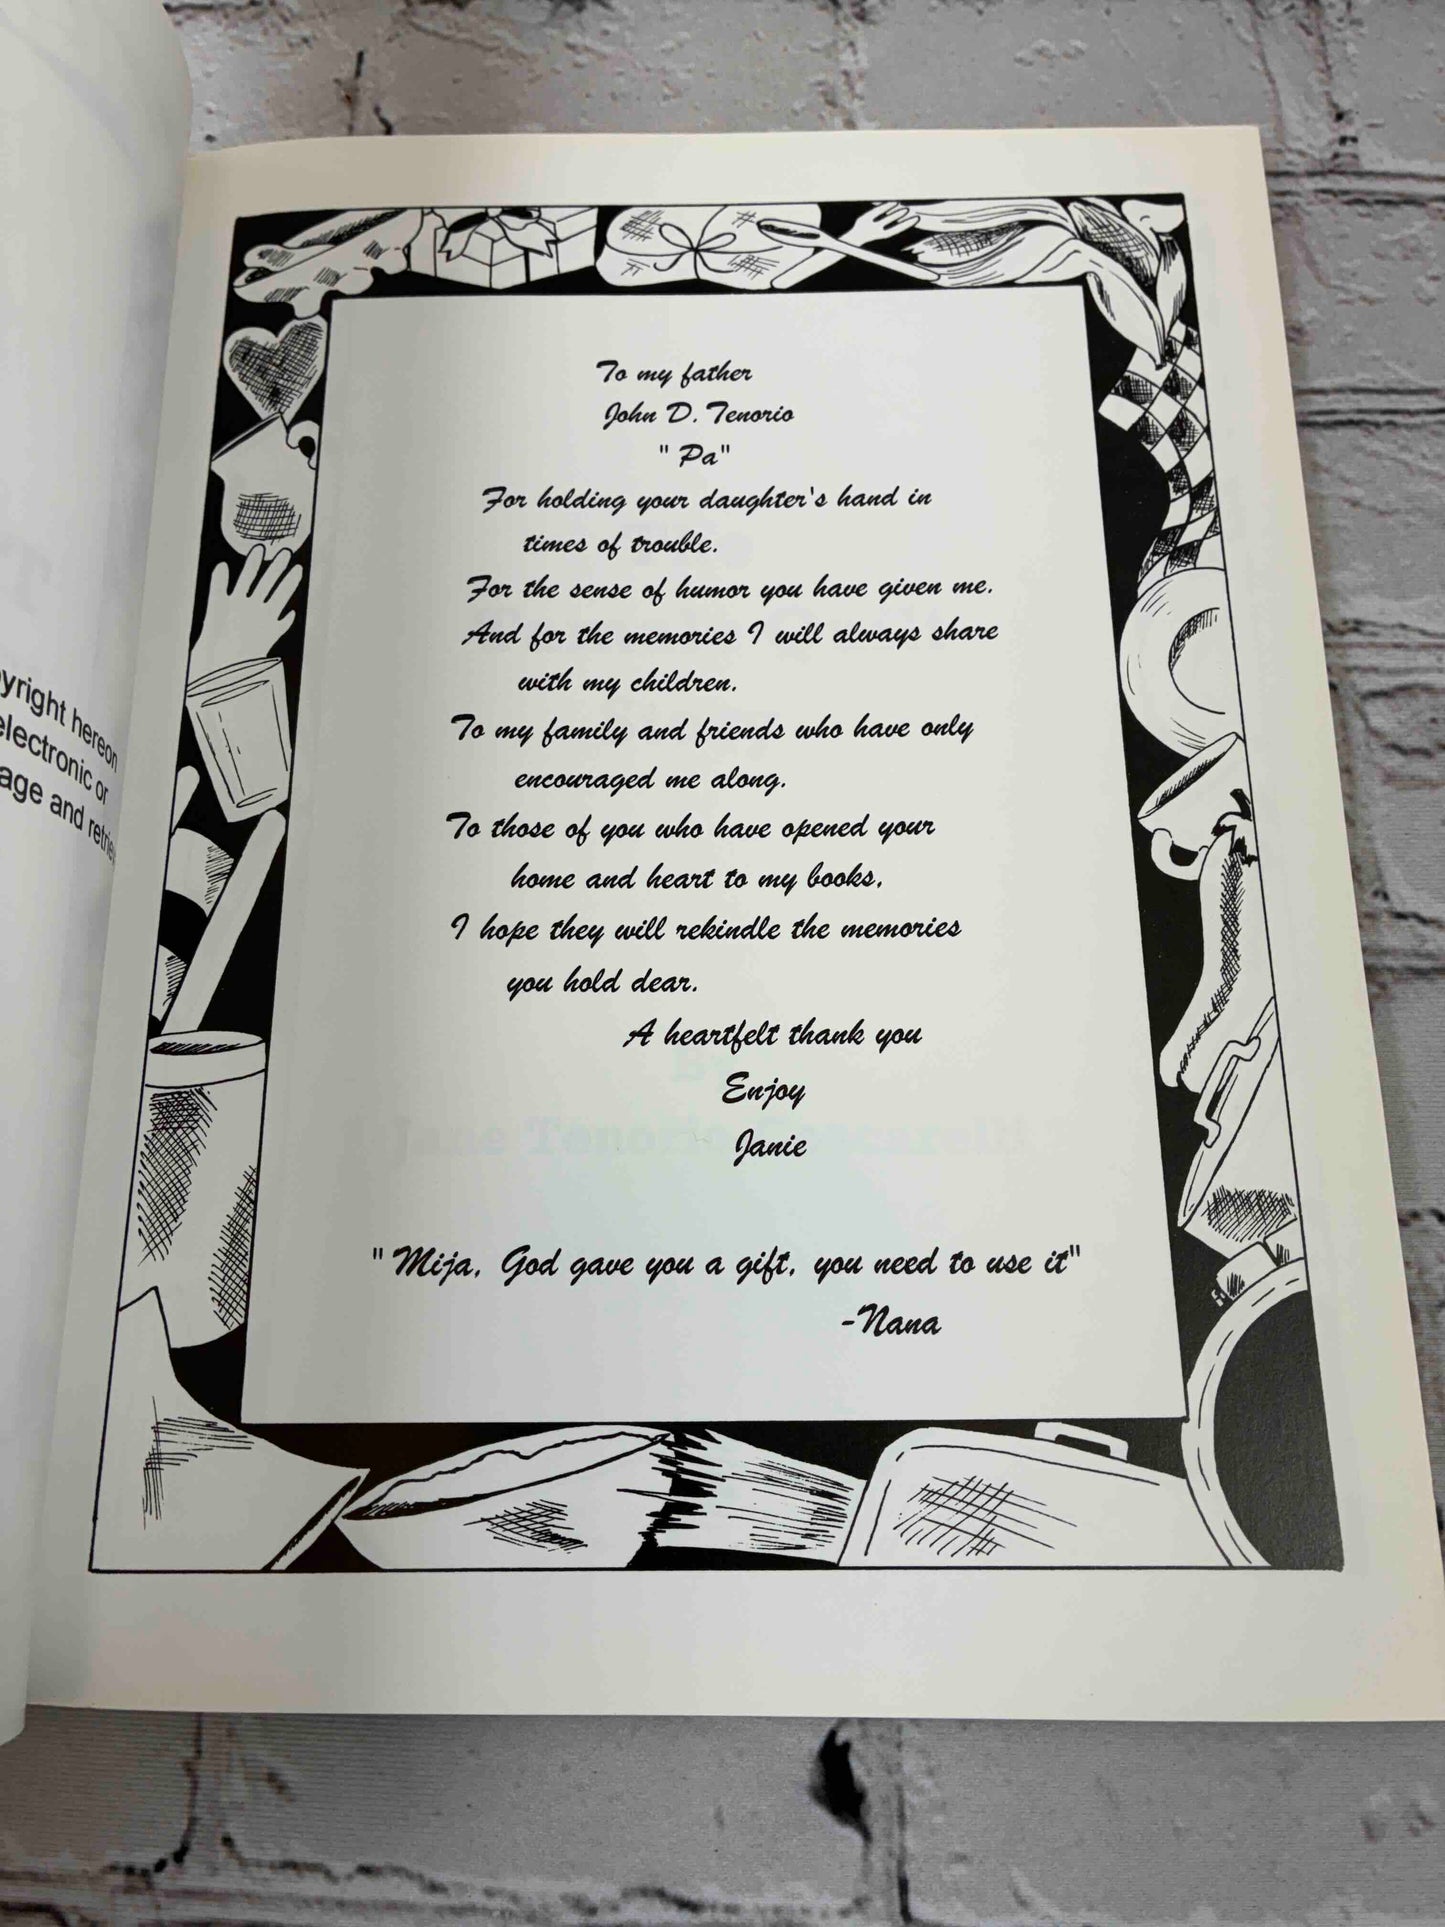 pyright hereon
electronic or
age and retriev
To my father
John D. Tenorio
" Pa"
For holding your daughter's hand in
times of trouble.
For the sense of humor you have given me.
And for the memories I will always share
with my children.
To my family and friends who have only
encouraged me along.
To those of you who have opened your
home and heart to my books,
I hope they will rekindle the memories
you hold dear.
A heartfelt thank you
Enjoy
Janie
" Mija, God gave you a gift, you need to use it"
-Nana